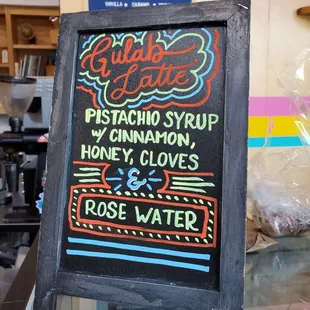 VANILLA
Gulab
Latte
PISTACHIO SYRUP
w/ CINNAMON,
HONEY, CLOVES
&
ROSE WATER